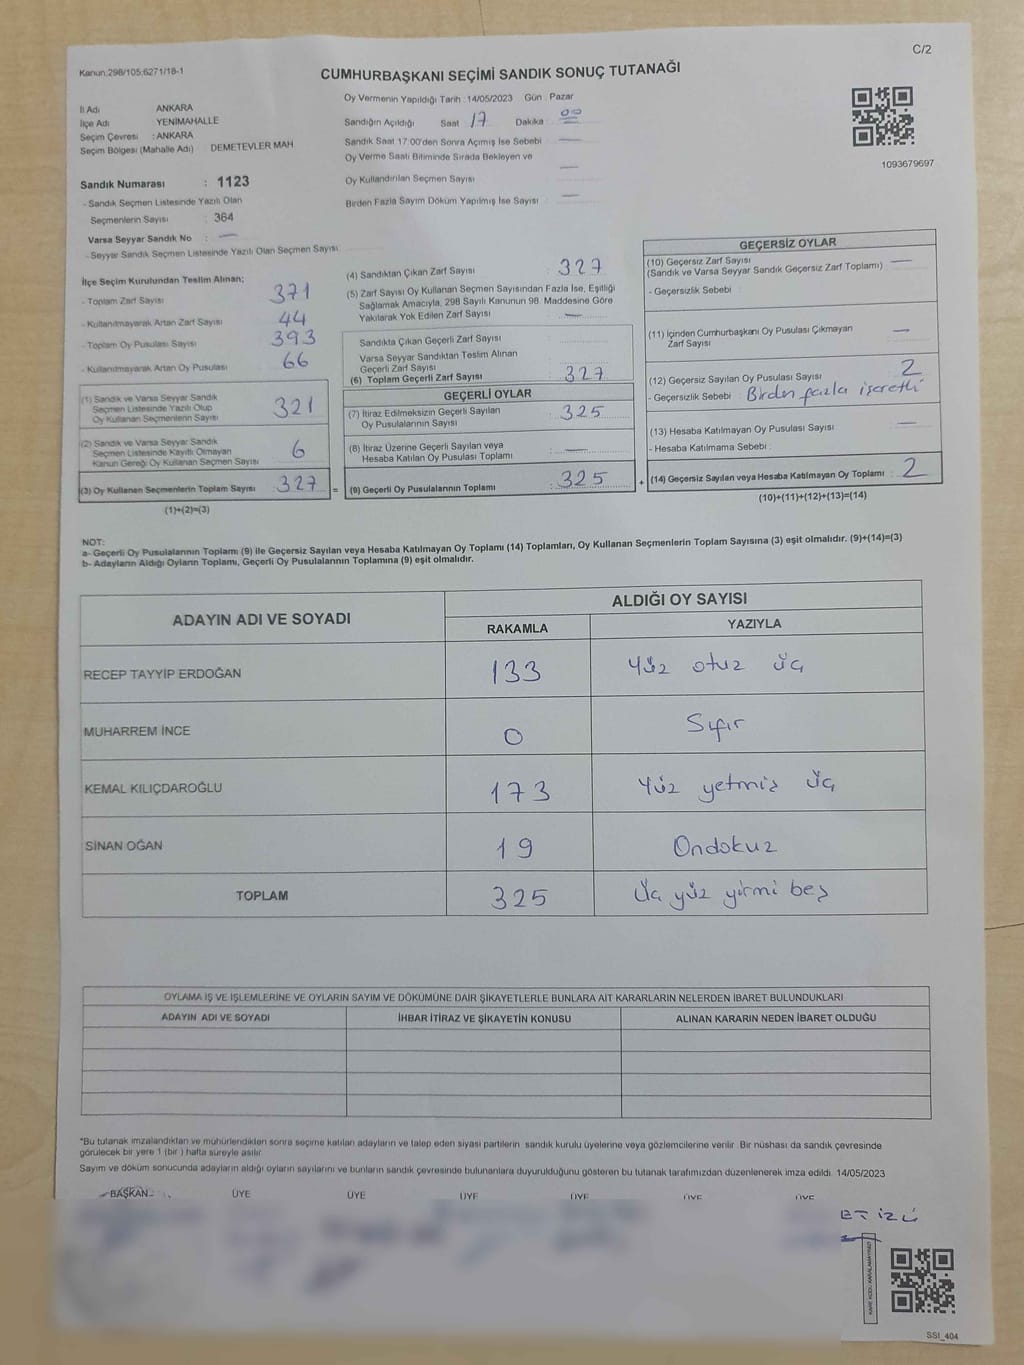 C/2
Kanun;298/105;6271/18-1
CUMHURBAŞKANI SEÇİMİ SANDIK SONUÇ TUTANAĞI
İl Adı ANKARA
İlçe Adı YENİMAHALLE
Seçim Çevresi : ANKARA
Seçim Bölgesi (Mahalle Adı) DEMETEVLER MAH
Sandık Numarası : 1123
- Sandık Seçmen Listesinde Yazılı Olan
Seçmenlerin Sayısı : 364
Varsa Seyyar Sandık No : —
- Seyyar Sandık Seçmen Listesinde Yazılı Olan Seçmen Sayısı
Oy Vermenin Yapıldığı Tarih : 14/05/2023 Gün : Pazar
Sandığın Açıldığı Saat 17 Dakika : 00
Sandık Saat 17:00'den Sonra Açımış İse Sebebi —
Oy Verme Saati Bitiminde Sırada Bekleyen ve
Oy Kullandırılan Seçmen Sayısı —
Birden Fazla Sayım Döküm Yapılmış İse Sayısı : —
1093679697
İlçe Seçim Kurulundan Teslim Alınan;
- Toplam Zarf Sayısı 371
- Kullanılmayarak Artan Zarf Sayısı 44
- Toplam Oy Pusulası Sayısı 393
- Kullanılmayarak Artan Oy Pusulası 66
(1) Sandık ve Varsa Seyyar Sandık
Seçmen Listesinde Yazılı Olup
Oy Kullanan Seçmenlerin Sayısı 321
(2) Sandık ve Varsa Seyyar Sandık
Seçmen Listesinde Kayıtlı Olmayan
Kanun Gereği Oy Kullanan Seçmen Sayısı 6
(3) Oy Kullanan Seçmenlerin Toplam Sayısı : 327 =
(1)+(2)=(3)
(4) Sandıktan Çıkan Zarf Sayısı : 327
(5) Zarf Sayısı Oy Kullanan Seçmen Sayısından Fazla İse, Eşitliği
Sağlamak Amacıyla, 298 Sayılı Kanunun 98. Maddesine Göre
Yakılarak Yok Edilen Zarf Sayısı : —
Sandıkta Çıkan Geçerli Zarf Sayısı
Varsa Seyyar Sandıktan Teslim Alınan
Geçerli Zarf Sayısı
(6) Toplam Geçerli Zarf Sayısı : 327
GEÇERLİ OYLAR
(7) İtiraz Edilmeksizin Geçerli Sayılan
Oy Pusulasının Sayısı : 325
(8) İtiraz Üzerine Geçerli Sayılan veya
Hesaba Katılan Oy Pusulası Toplamı : —
(9) Geçerli Oy Pusulalarının Toplamı : 325 +
GEÇERSİZ OYLAR
(10) Geçersiz Zarf Sayısı —
(Sandık ve Varsa Seyyar Sandık Geçersiz Zarf Toplamı)
- Geçersizlik Sebebi :
(11) İçinden Cumhurbaşkanı Oy Pusulası Çıkmayan
Zarf Sayısı —
(12) Geçersiz Sayılan Oy Pusulası Sayısı : 2
- Geçersizlik Sebebi : Birden fazla işaretli
(13) Hesaba Katılmayan Oy Pusulası Sayısı : —
- Hesaba Katılmama Sebebi :
(14) Geçersiz Sayılan veya Hesaba Katılmayan Oy Toplamı : 2
(10)+(11)+(12)+(13)=(14)
NOT:
a- Geçerli Oy Pusulalarının Toplamı (9) ile Geçersiz Sayılan veya Hesaba Katılmayan Oy Toplamı (14) Toplamları, Oy Kullanan Seçmenlerin Toplam Sayısına (3) eşit olmalıdır. (9)+(14)=(3)
b- Adayların Aldığı Oyların Toplamı, Geçerli Oy Pusulalarının Toplamına (9) eşit olmalıdır.
ADAYIN ADI VE SOYADI ALDIĞI OY SAYISI
RAKAMLA YAZIYLA
RECEP TAYYİP ERDOĞAN 133 Yüz otuz üç
MUHARREM İNCE 0 Sıfır
KEMAL KILIÇDAROĞLU 173 Yüz yetmiş üç
SİNAN OĞAN 19 Ondokuz
TOPLAM 325 Üç yüz yirmi beş
OYLAMA İŞ VE İŞLEMLERİNE VE OYLARIN SAYIM VE DÖKÜMÜNE DAİR ŞİKAYETLERLE BUNLARA AİT KARARLARIN NELERDEN İBARET BULUNDUKLARI
ADAYIN ADI VE SOYADI İHBAR İTİRAZ VE ŞİKAYETİN KONUSU ALINAN KARARIN NEDEN İBARET OLDUĞU
*Bu tutanak imzalandıktan ve mühürlendikten sonra seçime katılan adayların ve talep eden siyasi partilerin sandık kurulu üyelerine veya gözlemcilerine verilir. Bir nüshası da sandık çevresinde
görülecek bir yere 1 (bir ) hafta süreyle asılır.
Sayım ve döküm sonucunda adayların aldığı oyların sayılarını ve bunların sandık çevresinde bulunanlara duyurulduğunu gösteren bu tutanak tarafımızdan düzenlenerek imza edildi. 14/05/2023
BAŞKAN ÜYE ÜYE ÜYE ÜYE ÜYE ÜYE
KARE KODU KARALAMAYINIZ!
SSI_404